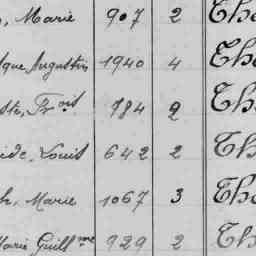 Marie 907 2 The
que Augustin 1940 4 The
ste, Frois 784 2 The
ide, Louis 642 2 Th
h, Marie 1067 3 Tho
Marie Guillme 929 2 Th